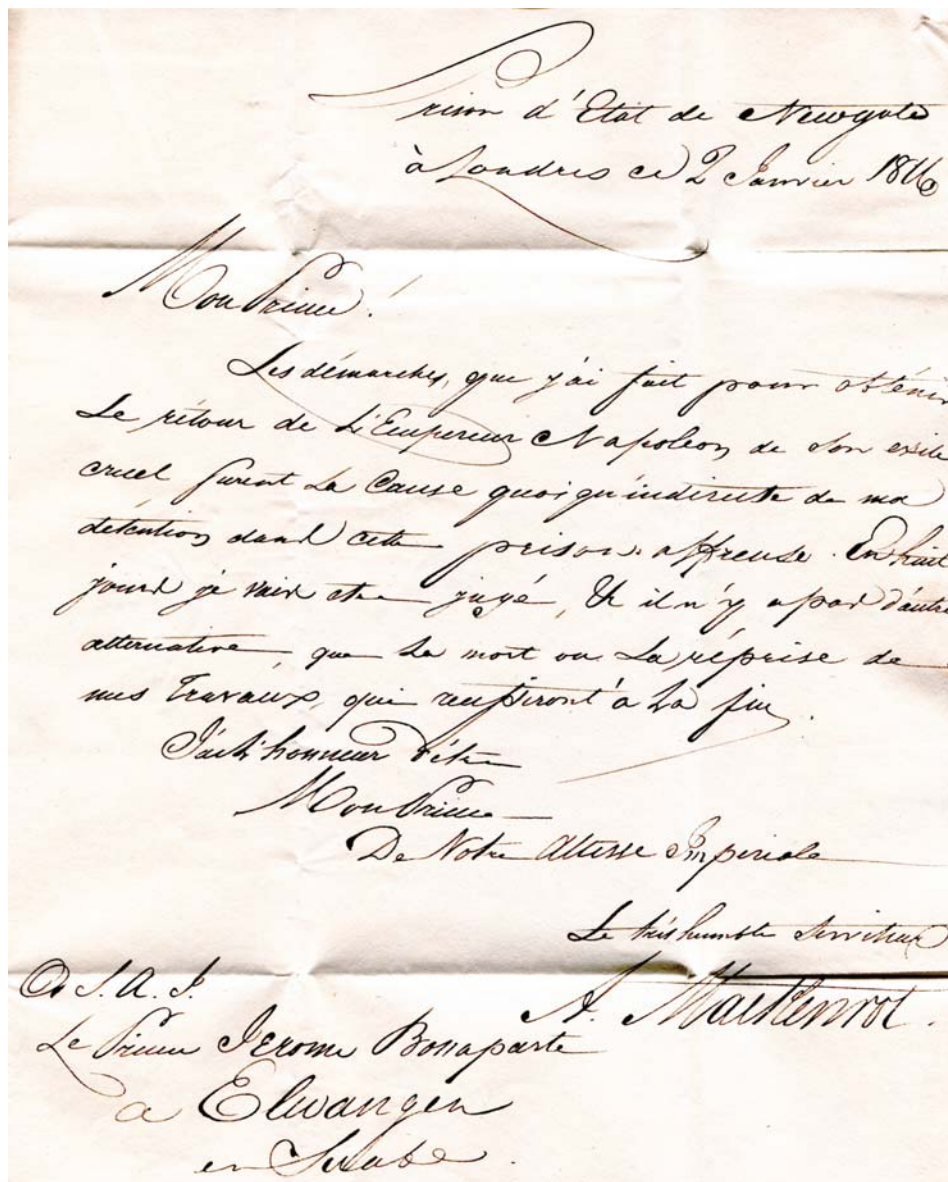 Prison d'Etat de Newgate
à Londres ce 2 Janvier 1816
Mon Prince!
Les démarches, que j'ai fait pour obténir
Le rétour de L'Empereur Napoleon de son exile
cruel furent La Cause quoiqu'indirecte de ma
detention dans cette prison affreuse. En huit
jours je vais etre jugé, & il n'y a pas d'autre
alternative, que La mort ou La réprise de
mes Travaux, qui reussiront à La fin.
J'ai L'honneur d'être
Mon Prince
De Votre Altesse Imperiale
Le très humble Serviteur
A. Mackenrot.
A S. A. I.
Le Prince Jerome Bonaparte
a Elwangen
en Suabe.